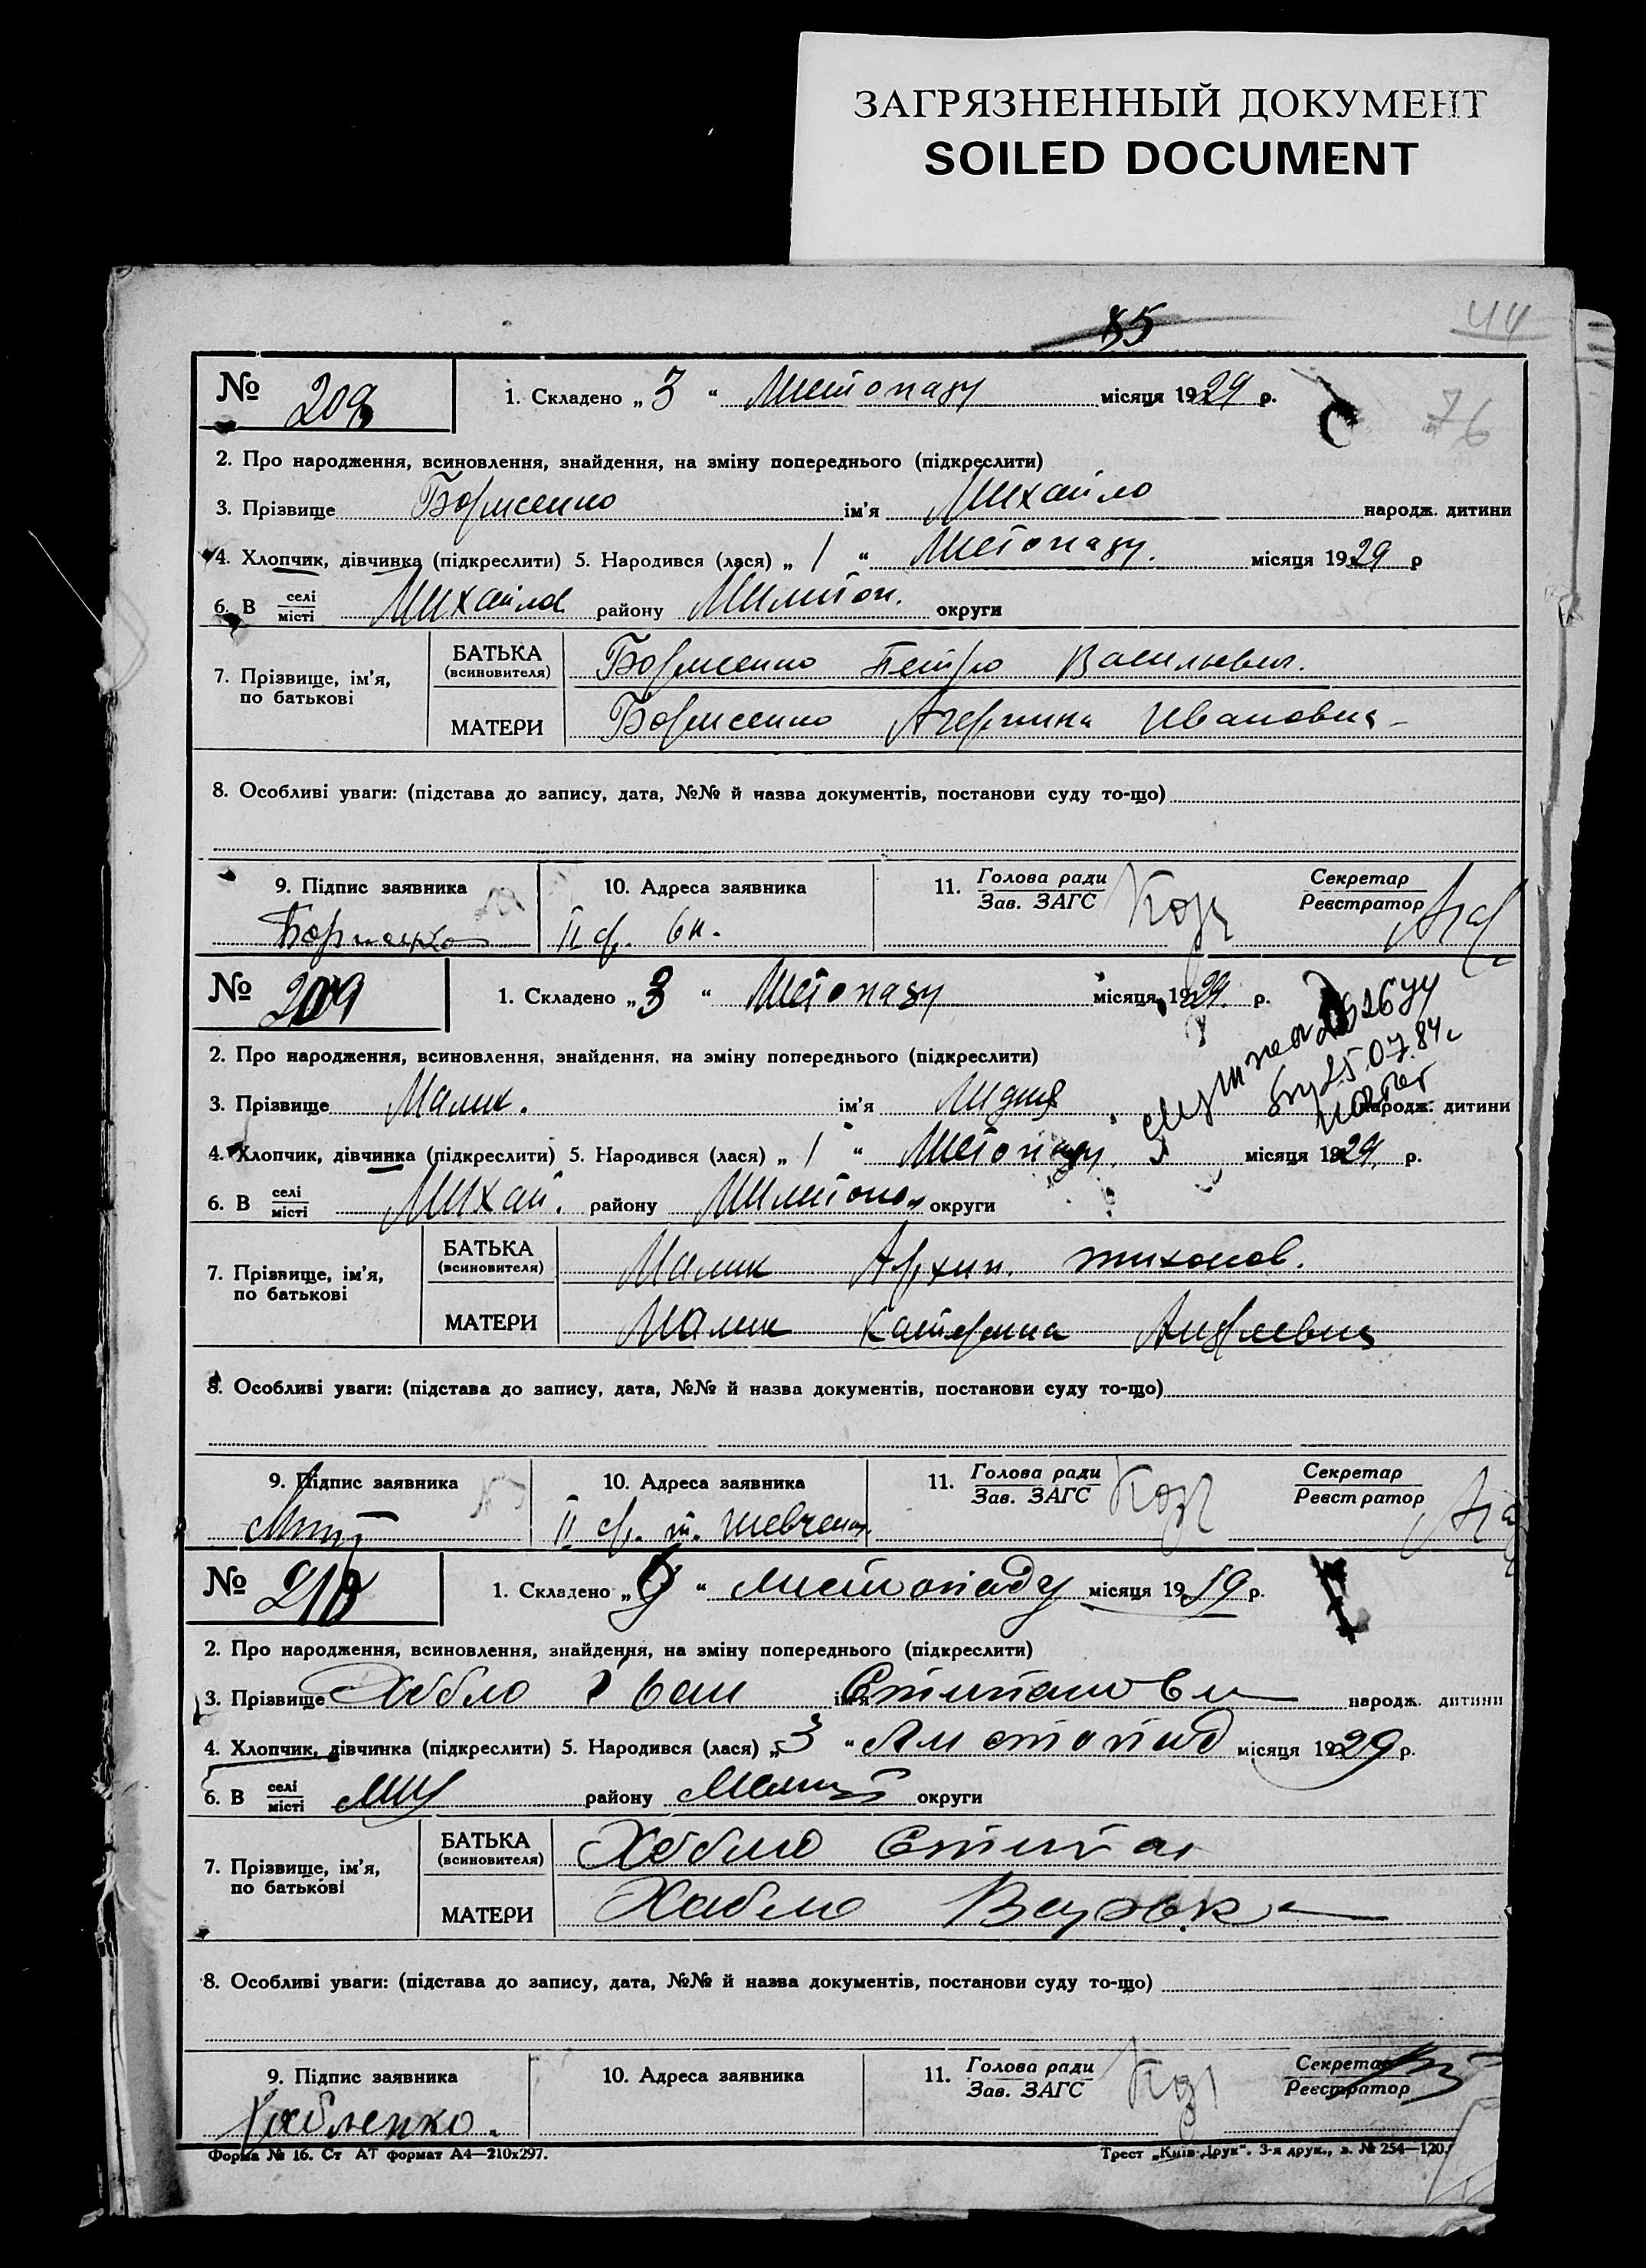 ЗАГРЯЗНЕННЫЙ ДОКУМЕНТ
SOILED DOCUMENT
85
44
№ 208 1. Складено „ 3 “ Листопаду місяця 1929 р.
76
2. Про народження, всиновлення, знайдення, на зміну попереднього (підкреслити)
3. Прізвище Борисенко ім'я Михайло народж. дитини
4. Хлопчик, дівчинка (підкреслити) 5. Народився (лася) „ 1 “ Листопаду. місяця 1929 р
6. В селі/місті Михайлов району Милитоп. округи
7. Прізвище, ім'я, по батькові
БАТЬКА (всиновителя) Борисенко Петро Васильевич.
МАТЕРИ Борисенко Ивановна
8. Особливі уваги: (підстава до запису, дата, №№ й назва документів, постанови суду то-що)
9. Підпис заявника 10. Адреса заявника 11. Голова ради/Зав. ЗАГС Секретар/Реєстратор
Борисенко II
№ 209 1. Складено „ 3 “ Листопаду місяця 1929. р.
25.07.84г
2. Про народження, всиновлення, знайдення, на зміну попереднього (підкреслити)
3. Прізвище Малик. ім'я Лидия народж. дитини
4. Хлопчик, дівчинка (підкреслити) 5. Народився (лася) „ 1 “ Листопаду. місяця 1929. р.
6. В селі/місті Михай. району Милитопол округи
7. Прізвище, ім'я, по батькові
БАТЬКА (всиновителя) Малик Архип. Тихонов.
МАТЕРИ Малик Катерина Андреевна
8. Особливі уваги: (підстава до запису, дата, №№ й назва документів, постанови суду то-що)
9. Підпис заявника 10. Адреса заявника 11. Голова ради/Зав. ЗАГС Секретар/Реєстратор
II Шевченк.
№ 210 1. Складено „ “ листопаду місяця 19 р.
2. Про народження, всиновлення, знайдення, на зміну попереднього (підкреслити)
3. Прізвище Хабло Іван ім'я народж. дитини
4. Хлопчик, дівчинка (підкреслити) 5. Народився (лася) „ 3 “ Листопад місяця 1929 р.
6. В селі/місті Мих району округи
7. Прізвище, ім'я, по батькові
БАТЬКА (всиновителя) Хабло Степан
МАТЕРИ Хабло
8. Особливі уваги: (підстава до запису, дата, №№ й назва документів, постанови суду то-що)
9. Підпис заявника 10. Адреса заявника 11. Голова ради/Зав. ЗАГС Секретар/Реєстратор
Хабленко.
Форма № 16. Ст АТ формат А4—210х297. Трест „Київ-Друк“. 3-я друк., з. № 254—120.